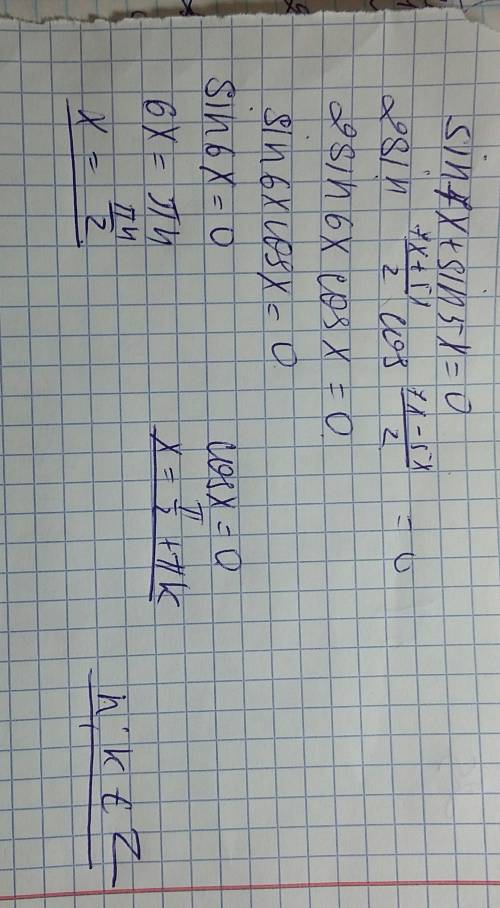 sin 7x + sin 5x = 0
2 sin (7x + 5x)/2 cos (7x - 5x)/2 = 0
2 sin 6x cos x = 0
sin 6x cos x = 0
sin 6x = 0 cos x = 0
6x = πn x = π/2 + πk
x = πn/2 n, k ∈ Z